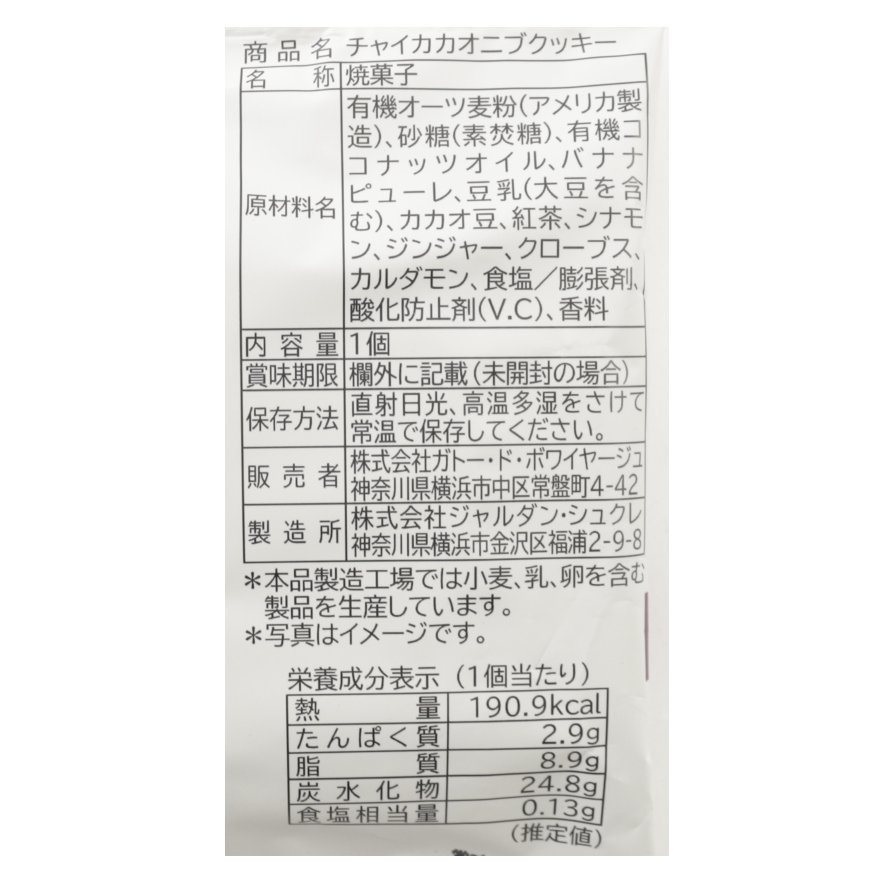 商品名 チャイカカオニブクッキー
名称 焼菓子
原材料名 有機オーツ麦粉(アメリカ製
造)、砂糖(素焚糖)、有機コ
コナッツオイル、バナナ
ピューレ、豆乳(大豆を含
む)、カカオ豆、紅茶、シナモ
ン、ジンジャー、クローブス、
カルダモン、食塩／膨張剤、
酸化防止剤(V.C)、香料
内容量 1個
賞味期限 欄外に記載(未開封の場合)
保存方法 直射日光、高温多湿をさけて
常温で保存してください。
販売者 株式会社ガトー・ド・ボワイヤージュ
神奈川県横浜市中区常盤町4-42
製造所 株式会社ジャルダン・シュクレ
神奈川県横浜市金沢区福浦2-9-8
＊本品製造工場では小麦、乳、卵を含む
製品を生産しています。
＊写真はイメージです。
栄養成分表示(1個当たり)
熱量 190.9kcal
たんぱく質 2.9g
脂質 8.9g
炭水化物 24.8g
食塩相当量 0.13g
(推定値)